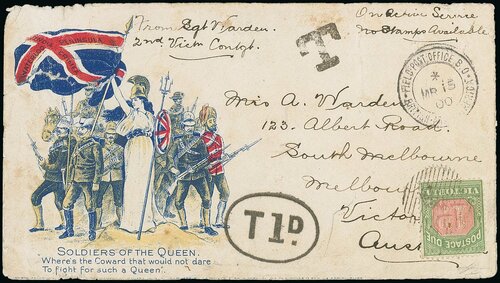 From Sgt Warden
2nd Victn Contgt.
On Active Service
No Stamps Available
T
FIELD POST OFFICE B.O.
*
MR 15
00
Mrs A. Warden
123. Albert Road.
South Melbourne
Melbou
Victor
Aust
T 1D.
VICTORIA
POSTAGE DUE
SOLDIERS OF THE QUEEN.
Where's the Coward that would not dare
To fight for such a Queen".